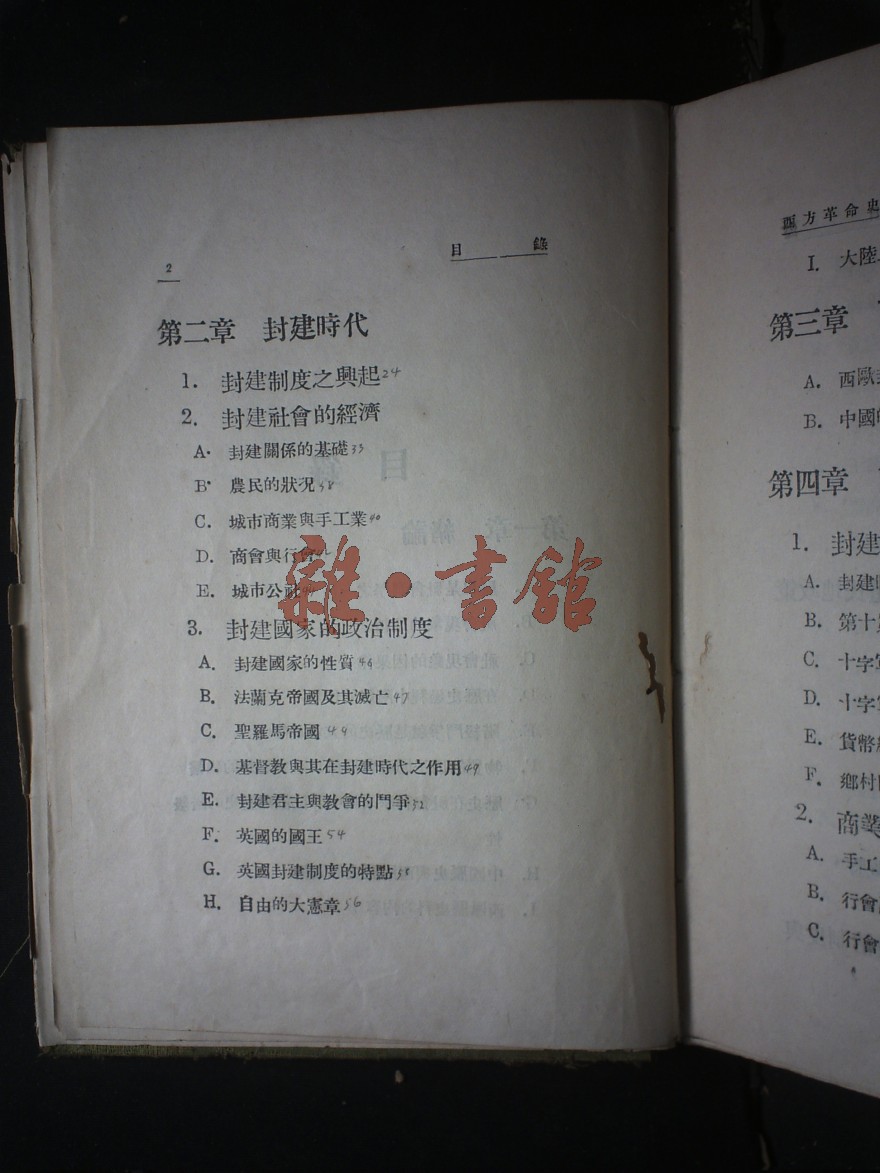 2
目 錄
第二章 封建時代
1. 封建制度之興起 24
2. 封建社會的經濟
A. 封建關係的基礎 33
B. 農民的狀況 38
C. 城市商業與手工業 40
D. 商會與行會
E. 城市公社
3. 封建國家的政治制度
A. 封建國家的性質 46
B. 法蘭克帝國及其滅亡 47
C. 聖羅馬帝國 49
D. 基督教與其在封建時代之作用 49
E. 封建君主與教會的鬥爭 52
F. 英國的國王 54
G. 英國封建制度的特點 55
H. 自由的大憲章 56
雜·書館
西方革命史
I. 大陸
第三章
A. 西歐封
B. 中國的
第四章
1. 封建
A. 封建
B. 第十
C. 十字軍
D. 十字軍
E. 貨幣
F. 鄉村
2. 商業
A. 手工
B. 行會
C. 行會